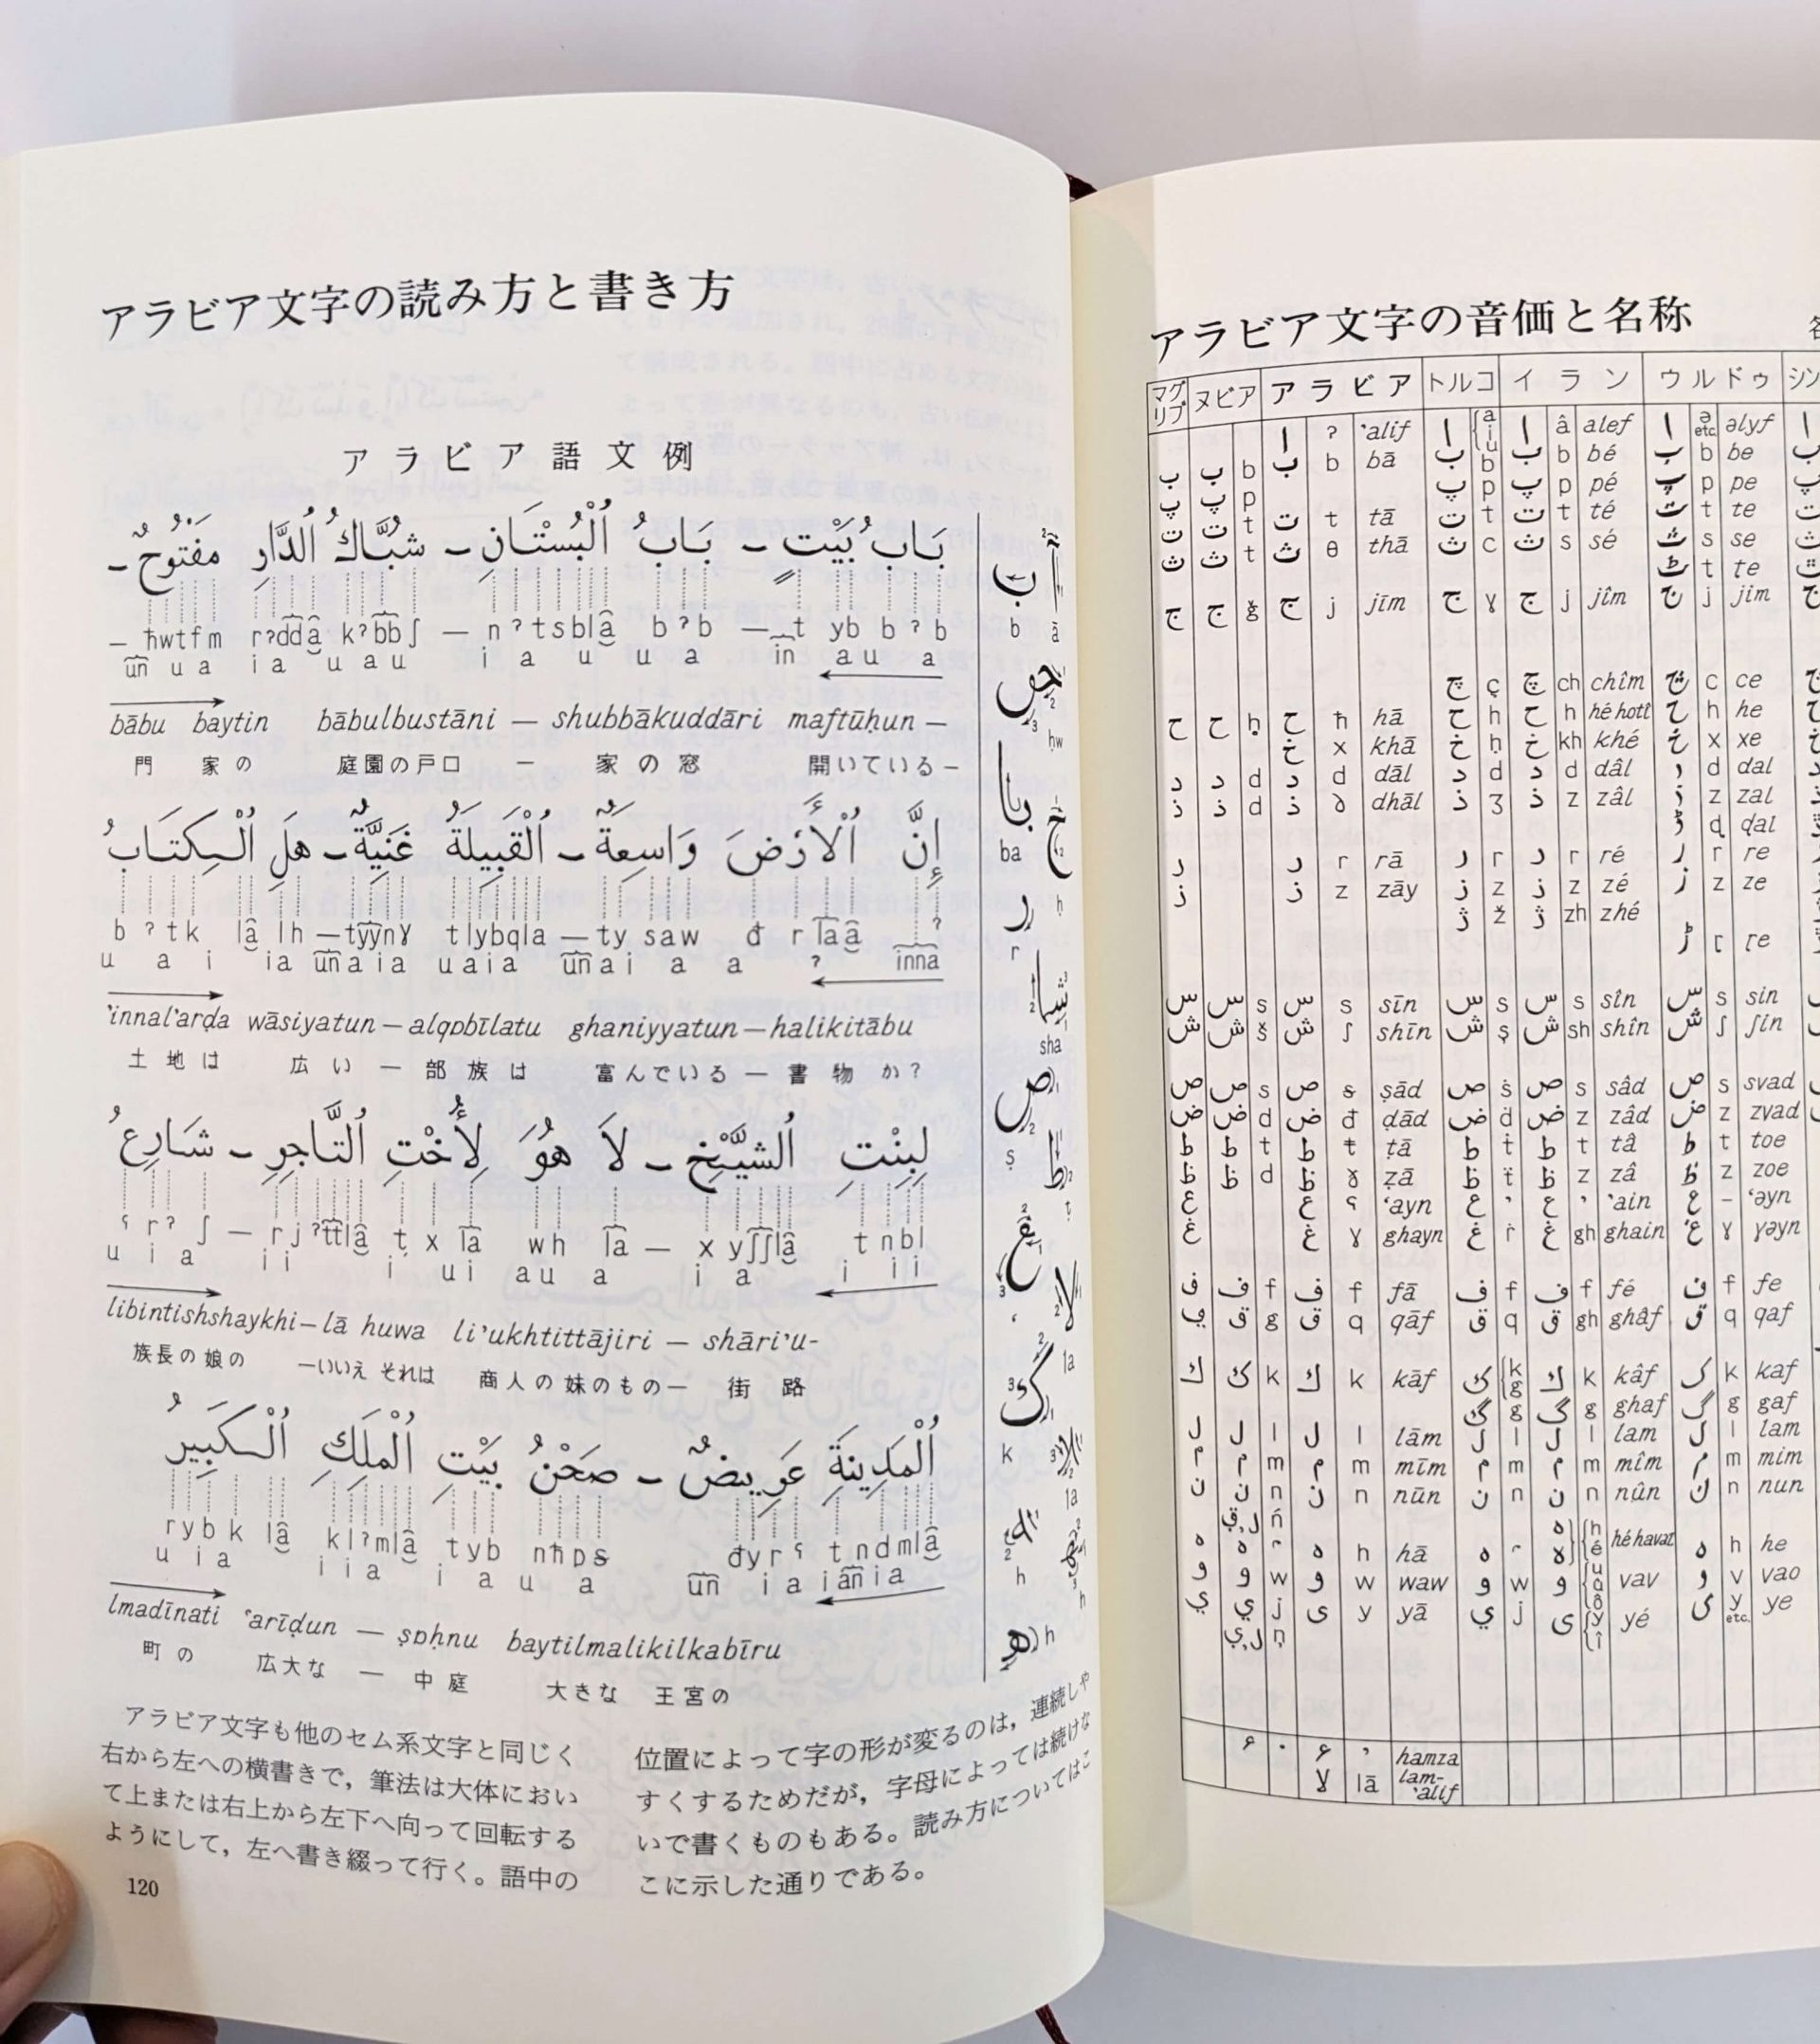 アラビア文字の読み方と書き方
アラビア語文例
بَاب بَيْتٍ – بَابُ اُلْبُسْتَانِ – شُبَّاكُ اُلدَّارِ مَفْتُوحٌ –
– ħwtfm rʔddâ kʔbbʃ – nʔtsblâ bʔb – t yb bʔb
un u a i a u a u i a u u a in a u a
bābu baytin bābulbustāni – shubbākuddāri maftūḥun –
門 家の 庭園の戸口 – 家の窓 開いている–
إِنَّ اُلْأَرْضَ وَاسِعَةٌ – اُلْقَبِيلَةُ غَنِيَّةٌ – هَلِ اُلْكِتَابُ
b ʔ t k lâ lh – tyynɣ tlybqla – ty saw đ r laâ ʔ
u a i i a un a i a u a i a un a i a a ʔ inna
'innal'arḍa wāsiyatun – alqɒbīlatu ghaniyyatun – halikitābu
土地は 広い – 部族は 富んでいる – 書物か?
لِبِنْتِ اُلشَّيْخِ – لَا هُوَ لِأُخْتِ اُلتَّاجِرِ – شَارِعُ
ʕ rʔ ʃ – rj ʔttlâ t x la wh la – x yʃʃlâ t nbl
u i a i i i u i a u a i a i i i
libintishshaykhi – lā huwa li'ukhtittājiri – shāri'u-
族長の娘の –いいえ それは 商人の妹のもの– 街路
اُلْمَدِينَةِ عَرِيضٌ – صَحْنُ بَيْتِ اُلْمَلِكِ اُلْكَبِيرُ
rybk lâ klʔmlâ tyb nħɒs đyrʕ tndmlâ
u i a i i a i a u a un i a i an i a
lmadīnati ʿarīḍun – ṣɒḥnu baytilmalikilkabīru
町の 広大な – 中庭 大きな 王宮の
ب b ā
ḥw
ba ḥ
r
sha
ṣ ṭ
la
k
la
h h
h
アラビア文字も他のセム系文字と同じく
右から左への横書きで，筆法は大体におい
て上または右上から左下へ向って回転する
ようにして，左へ書き綴って行く。語中の
位置によって字の形が変るのは，連続しや
すくするためだが，字母によっては続けな
いで書くものもある。読み方についてはこ
こに示した通りである。
120
アラビア文字の音価と名称
マグリブ ヌビア アラビア トルコ イラン ウルドゥ シン
ا ʔ 'alif ا a i u ا â alef ا ə etc. əlyf ا
ب ب b ب b bā ب b ب b bé ب b be ب
پ پ p پ p پ p pé پ p pe پ
ت ت t ت t tā ت t ت t té ت t te ت
ث ث t ث θ thā ث c ث s sé ث s se ث
ٹ t te
ج ج ǧ ج j jīm ج ɣ ج j jîm ج j jim ج
چ ç چ ch chîm چ c ce
ح ح ḥ ح ħ hā ح h ح h hé hotî ح h he
خ x khā خ ḥ خ kh khé خ x xe
د د d د d dāl د d د d dâl د d dal
ذ ذ d ذ ð dhāl ذ ʒ ذ z zâl ذ z zal
ڈ ɖ ɖal
ر ر r rā ر r ر r ré ر r re
ز ز z zāy ز z ز z zé ز z ze
ژ ž ژ zh zhé
ڑ ɽ ɽe
س س s س s sīn س s س s sîn س s sin
ش ش š ش ʃ shīn ش ş ش sh shîn ش ʃ ʃin
ص ص s ص s ṣād ص ṡ ص s sâd ص s svad
ض ض d ض đ ḍād ض ḋ ض z zâd ض z zvad
ط ط t ط ŧ ṭā ط ṫ ط t tâ ط t toe
ظ ظ d ظ ẓā ظ ظ z zâ ظ z zoe
ع ع ʕ ʿayn ع ' ع ' 'ain ع – ʿəyn
غ غ ɣ ghayn غ ṙ غ gh ghain غ ɣ ɣəyn
ڢ ف f ف f fā ف f ف f fé ف f fe
ق g ق q qāf ق q ق gh ghâf ق q qaf
ك ك k ك k kāf ك k g ك k kâf ک k kaf
گ g گ g ghaf گ g gaf
ل ل l ل l lām ل l ل l lam ل l lam
م م m م m mīm م m م m mîm م m mim
ن ن n ن n nūn ن n ن n nûn ن n nun
ń
ه ه ه h hā ه ه h é hé havat ه h he
و و w و w waw و w و u û ô vav و v vao
ي ي j ى y yā ي j ى y î yé ى y etc. ye
ṇ
ء · ء ' hamza
لا lā lam-'alif